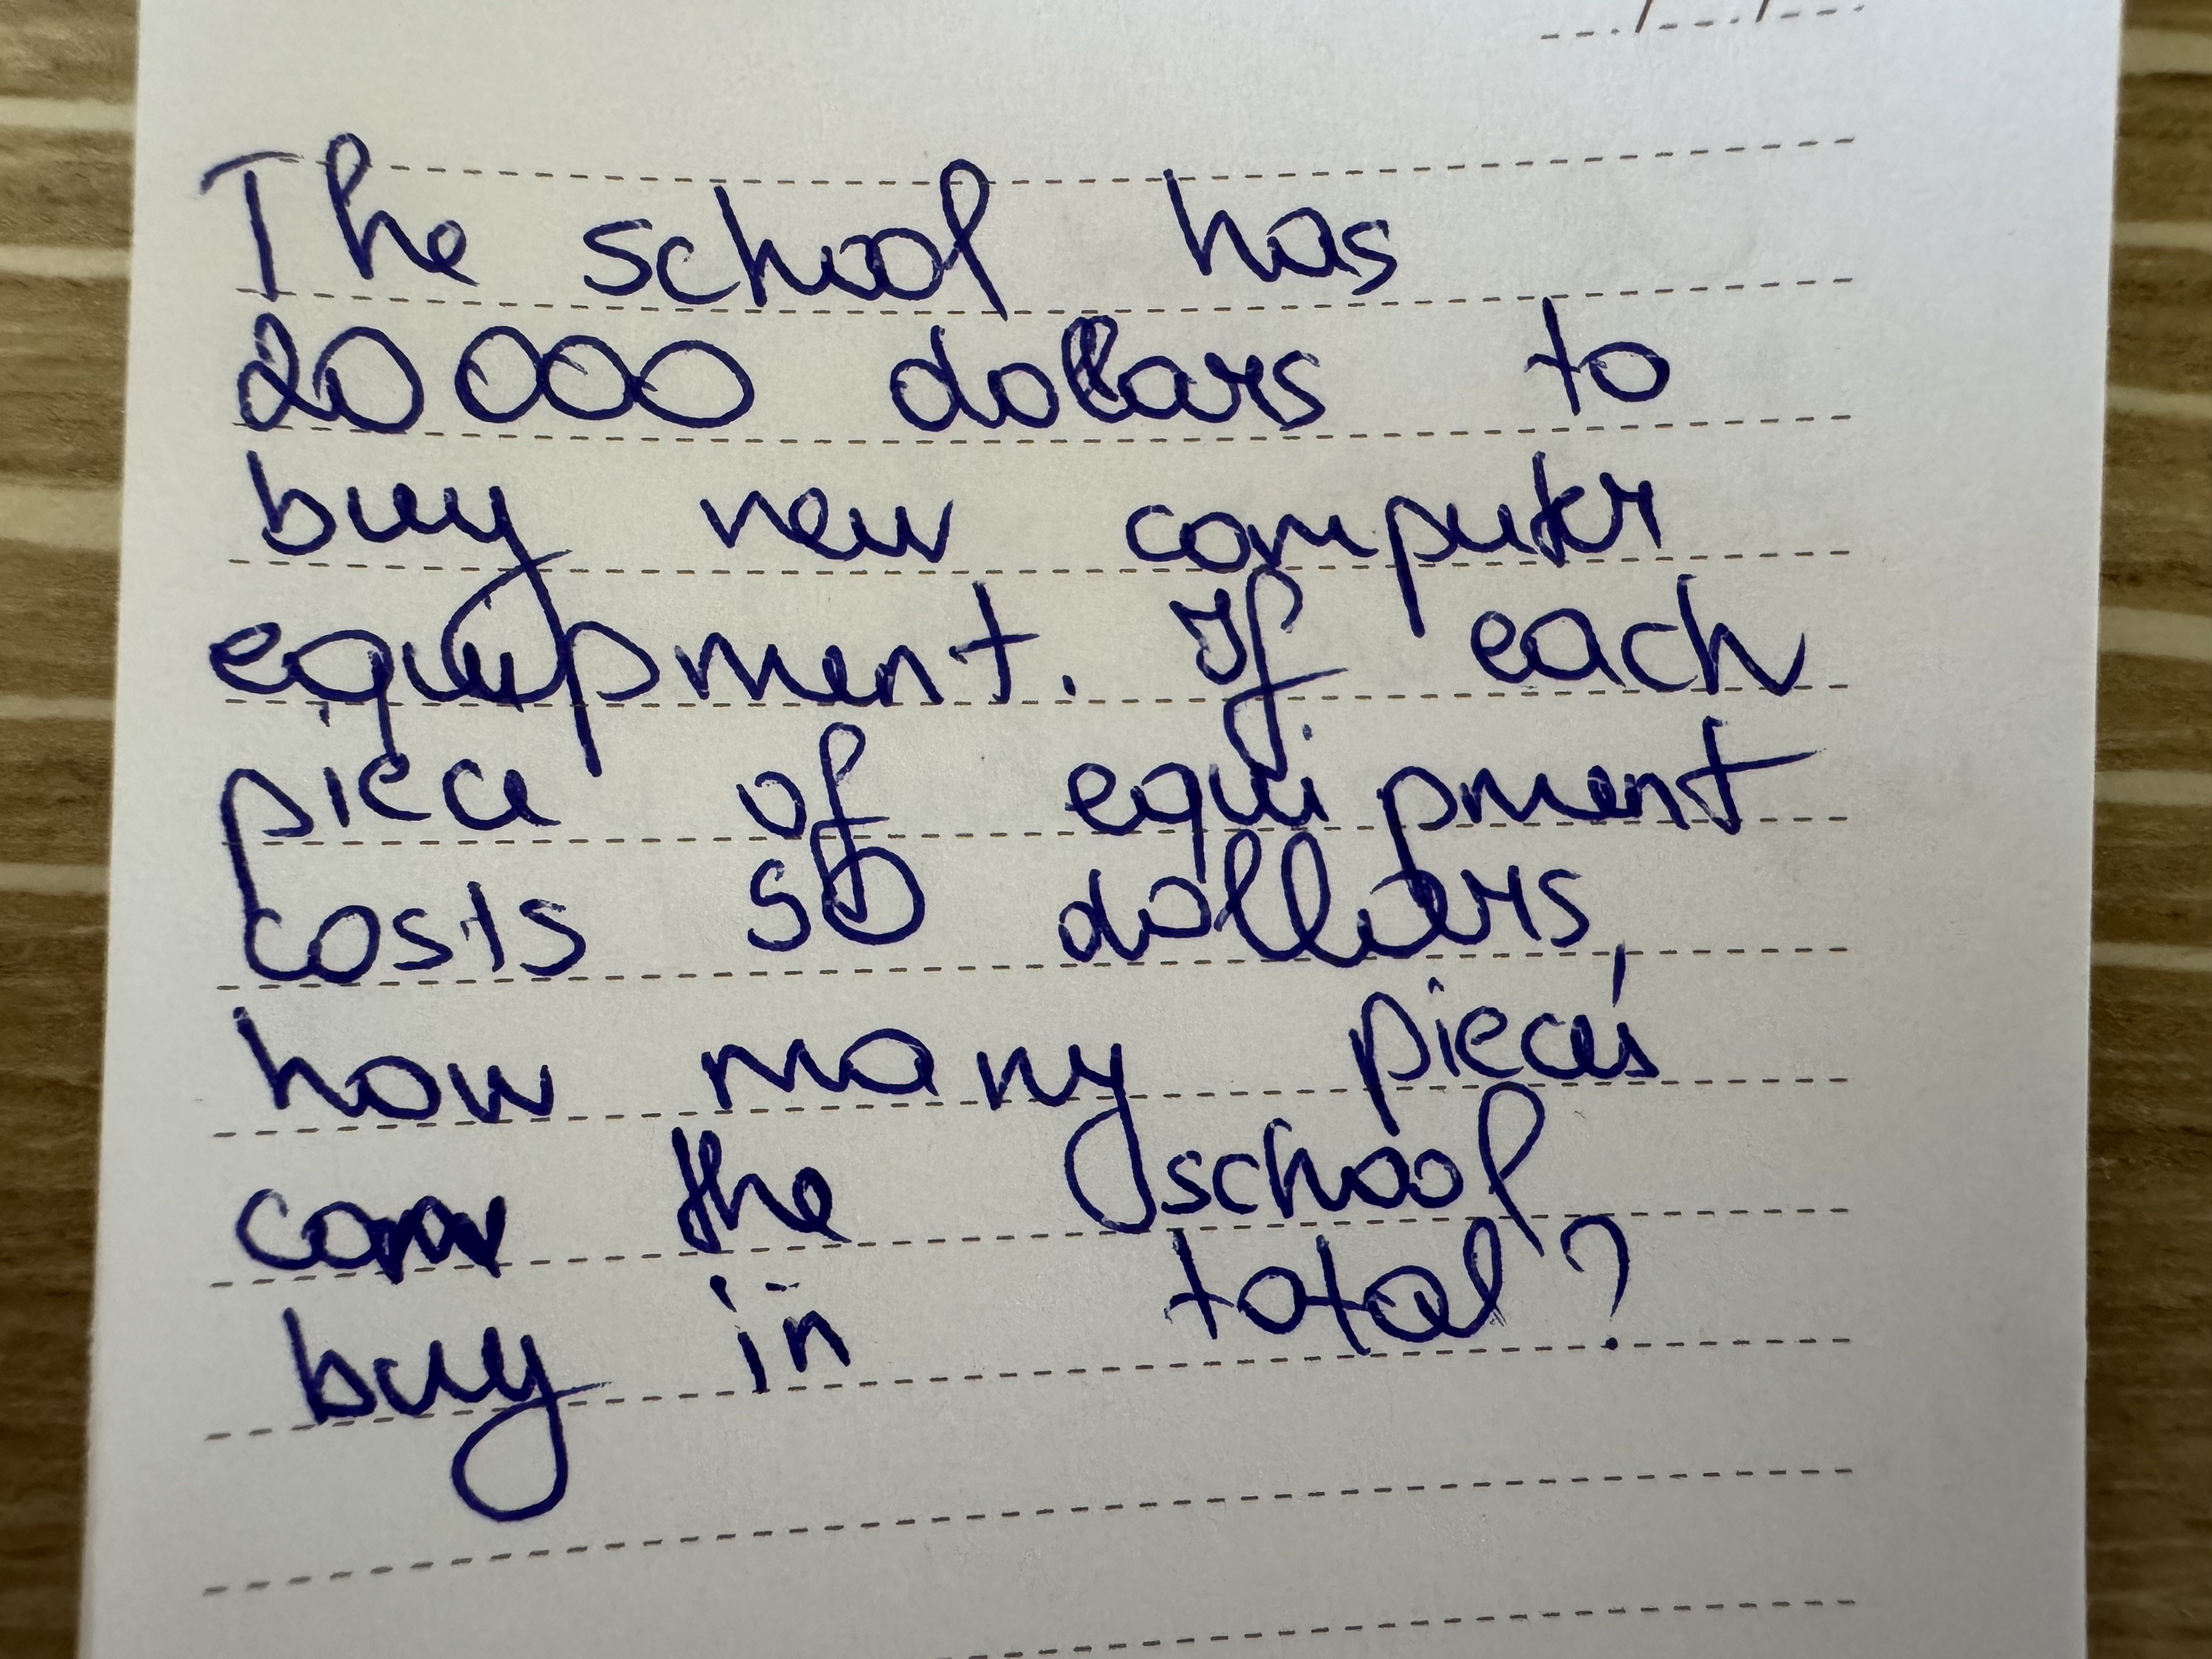 The school has
20 000 dollars to
buy new computer
equipment. If each
piece of equipment
costs 50 dollars,
how many pieces
can the school
buy in total?